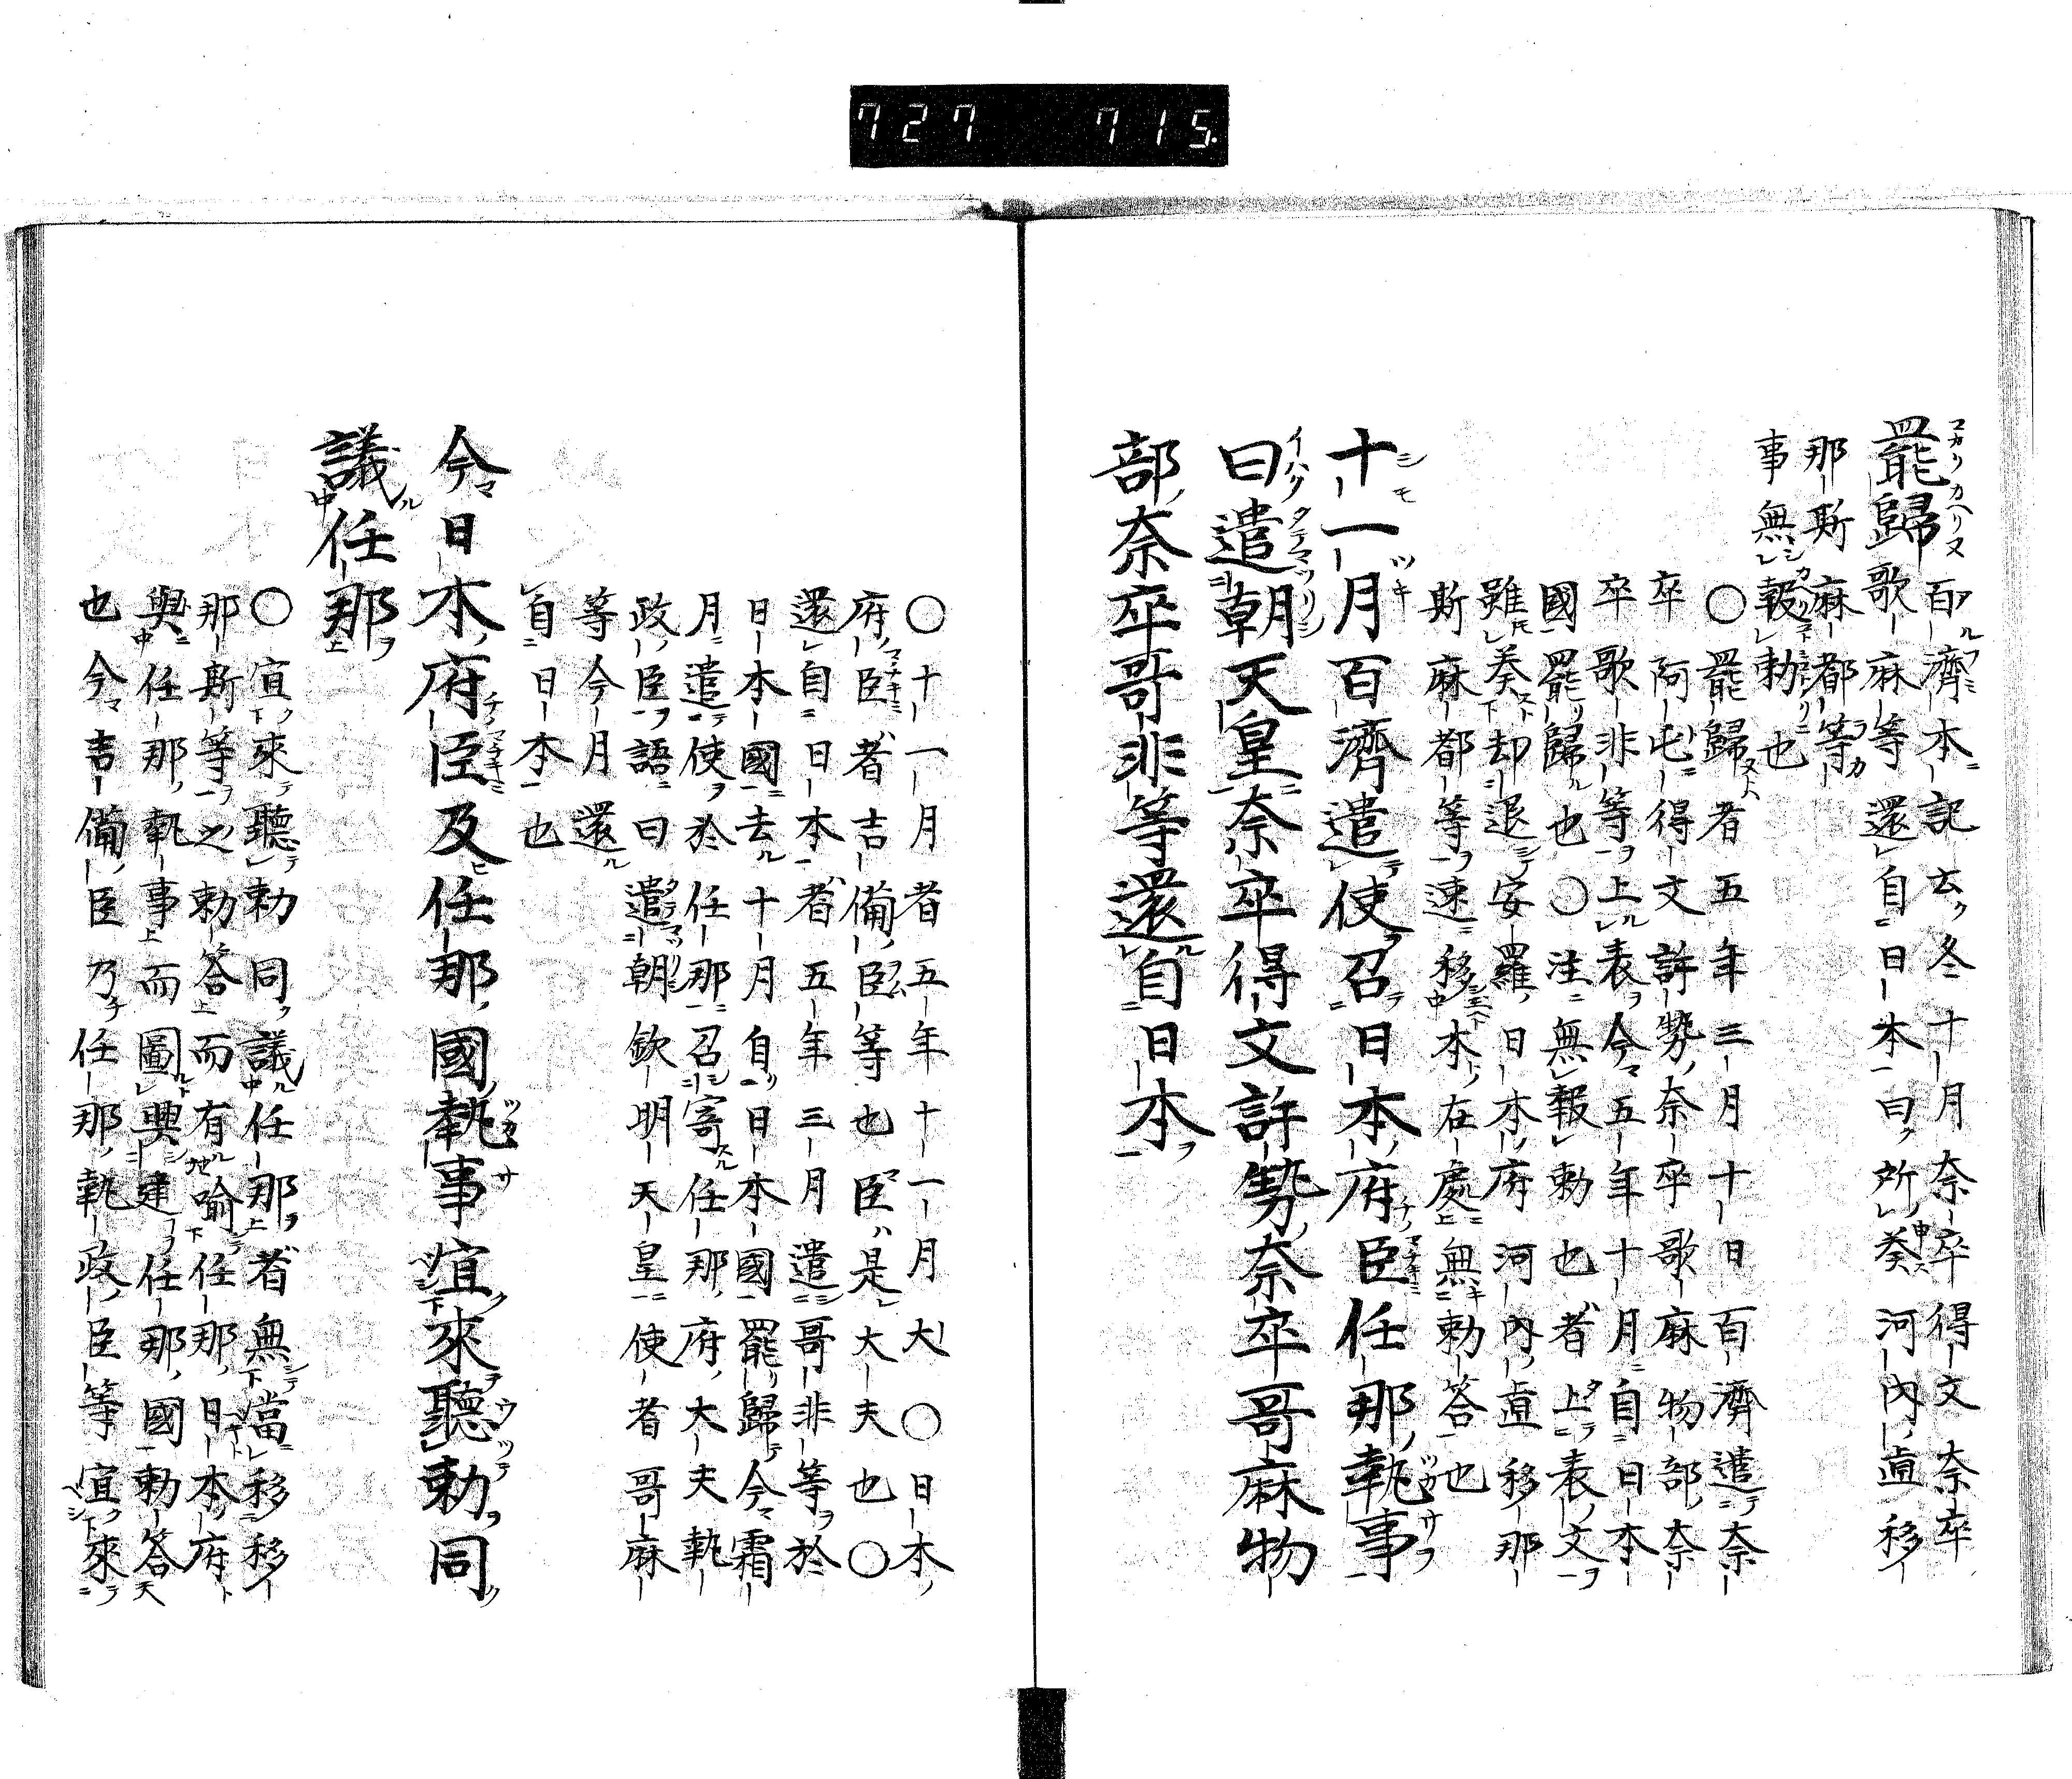 727 715
罷歸 百濟本記云冬十月奈卒得文奈卒
歌麻等還自日本曰所奏河內直移
那斯麻都等
事無報勅也
〇罷歸者五年三月十日百濟遣奈
卒阿屯得文許勢奈卒歌麻物部奈
卒歌非等上表今五年十月自日本
國罷歸也〇注無報勅也者上表文
雖奏却退安羅日本府河內直移那
斯麻都等速移本在處無勅答也
十一月百濟遣使召日本府臣任那執事
曰遣朝天皇奈卒得文許勢奈卒哥麻物
部奈卒哥非等還自日本
〇十一月者五年十一月大〇日本
府臣者吉備臣等也臣是大夫也〇
還自日本者五年三月遣哥非等於
日本國去十月自日本國罷歸今霜
月遣使於任那召寄任那府大夫執
政臣語曰遣朝欽明天皇使者哥麻
等今月還
自日本也
今日本府臣及任那國執事宜來聽勅同
議任那
〇宜來聽勅同議任那者無當移移
那斯等之勅答而有喻任那日本府
與任那執事而圖與建任那國勅答
也今吉備臣乃任那執政臣等宜來